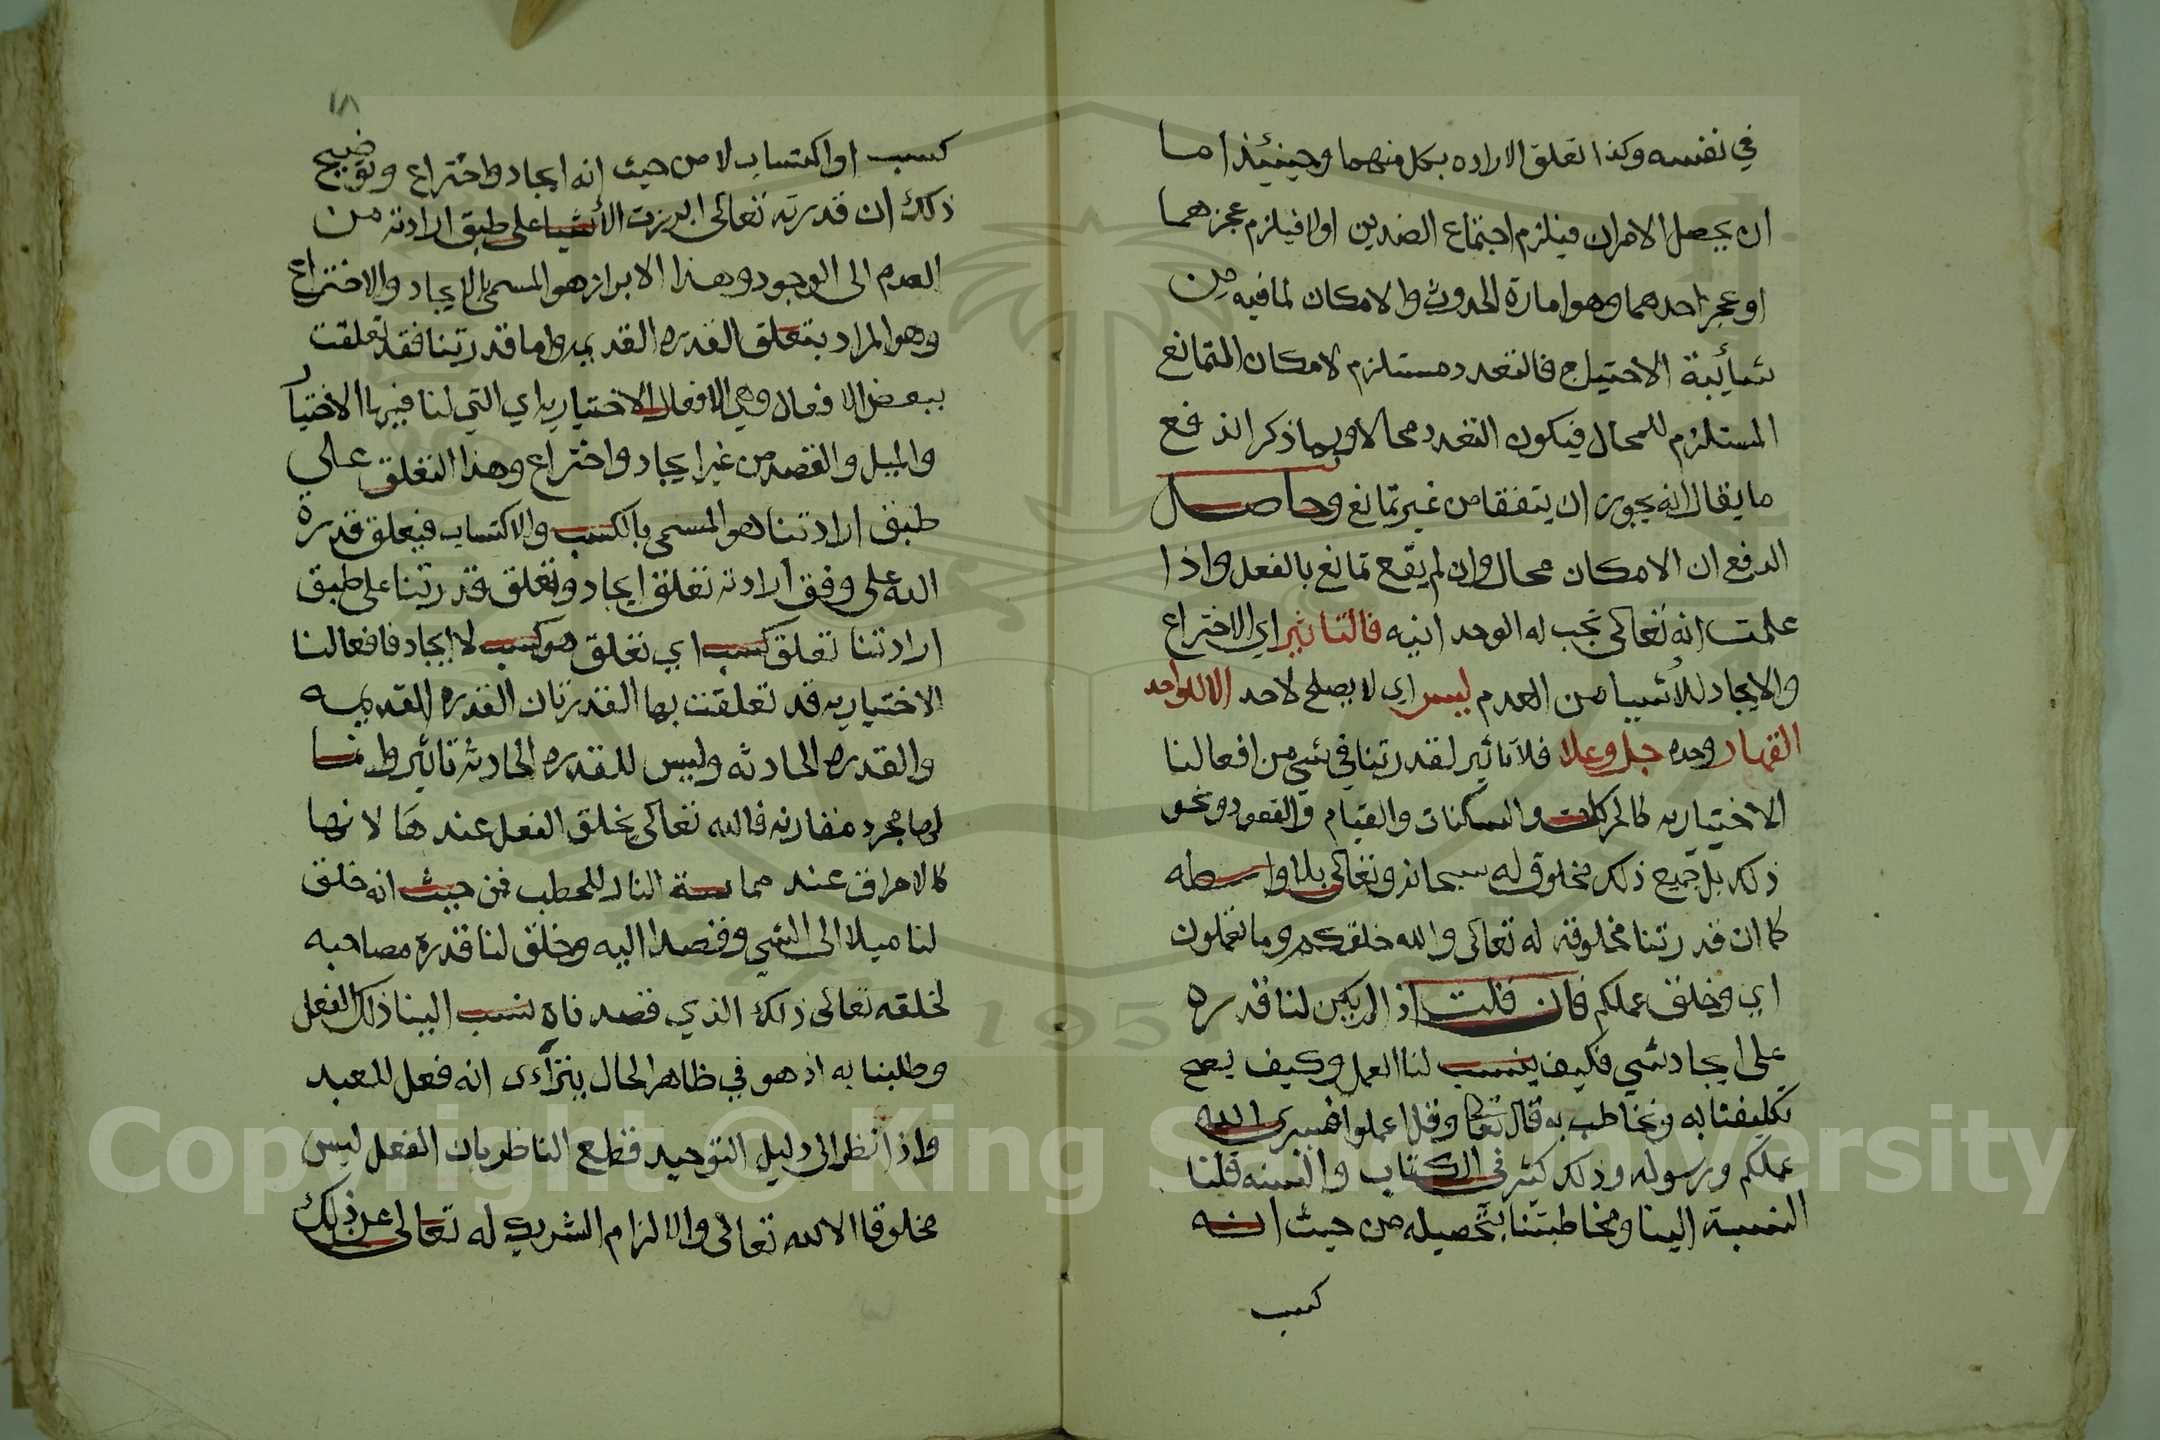 في نفسه وكذا تعلق الاراده بكل منهما وحينئذ اما
ان يحصل الامران فيلزم اجتماع الضدين اولا فيلزم عجزهما
او عجز احدهما وهو امارة الحدوث والامكان لما فيه من
شائبة الاحتياج فالتعدد مستلزم لامكان التمانع
المستلزم للمحال فيكون التعدد محالا وبما ذكر اندفع
ما يقال انه يجوز ان يتفقا من غير تمانع وحاصل
الدفع ان الامكان محال وان لم يقع تمانع بالفعل واذا
علمت انه تعالى تجب له الوحدانيه فالتاثير اي الاختراع
والايجاد للأشيا من العدم ليس اي لا يصلح لاحد الا للواحد
القهار وحده جل وعلا فلا تاثير لقدرتنا في شي من افعالنا
الاختياريه كالحركات والسكنات والقيام والقعود ونحو
ذلك بل جميع ذلك مخلوق له سبحانه وتعالى بلا واسطه
كما ان قدرتنا مخلوقة له تعالى والله خلقكم وما تعملون
اي وخلق عملكم فان قلت اذا لم يكن لنا قدره
على ايجاد شي فكيف ينسب لنا العمل وكيف يصح
تكليفنا به ونخاطب به قال تعالى وقل اعملوا فسيرى الله
عملكم ورسوله وذلك كثير في الكتاب والسنه قلنا
النسبة الينا ومخاطبتنا بتحصيله من حيث انه
كسب
١٨
كسب او اكتساب لا من حيث انه ايجاد واختراع وتوضيح
ذلك ان قدرته تعالى ابرزت الأشيا على طبق ارادته من
العدم الى الوجود وهذا الابراز هو المسمى بالايجاد والاختراع
وهو المراد بتعلق القدره القديمه واما قدرتنا فقد تعلقت
ببعض الافعال وهي الافعال الاختياريه اي التي لنا فيها الاختيار
والميل والقصد من غير ايجاد واختراع وهذا التعلق على
طبق ارادتنا هو المسمى بالكسب والاكتساب فتعلق قدرة
الله على وفق ارادته تعلق ايجاد وتعلق قدرتنا على طبق
ارادتنا تعلق كسب اي تعلق هو كسب لا ايجاد فافعالنا
الاختياريه قد تعلقت بها القدرتان القدره القديمه
والقدره الحادثه وليس للقدره الحادثه تاثير وانما
لها مجرد مقارنه فالله تعالى يخلق الفعل عندها لا بها
كالاحراق عند مماسة النار للحطب فمن حيث انه خلق
لنا ميلا الى الشي وقصدا اليه وخلق لنا قدره مصاحبه
لخلقه تعالى ذلك الذي قصدناه نسب الينا ذلك الفعل
وطلبنا به اذ هو في ظاهر الحال يتراءى انه فعل للعبد
واذا نظر الى دليل التوحيد قطع الناظر بان الفعل ليس
مخلوقا الا لله تعالى والا لزام الشريك له تعالى عن ذلك
Copyright © King Saud University
1957